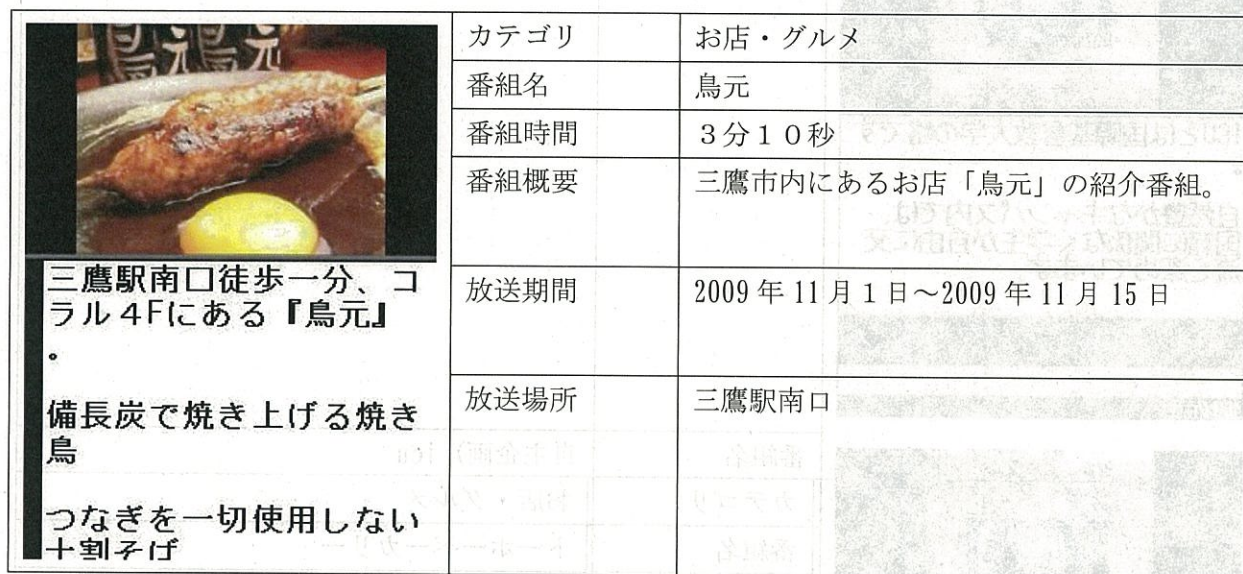 鳥元 鳥元
三鷹駅南口徒歩一分、コ
ラル4Fにある『鳥元』
。
備長炭で焼き上げる焼き
鳥
つなぎを一切使用しない
十割そば
カテゴリ お店・グルメ
番組名 鳥元
番組時間 3分10秒
番組概要 三鷹市内にあるお店「鳥元」の紹介番組。
放送期間 2009年11月1日~2009年11月15日
放送場所 三鷹駅南口